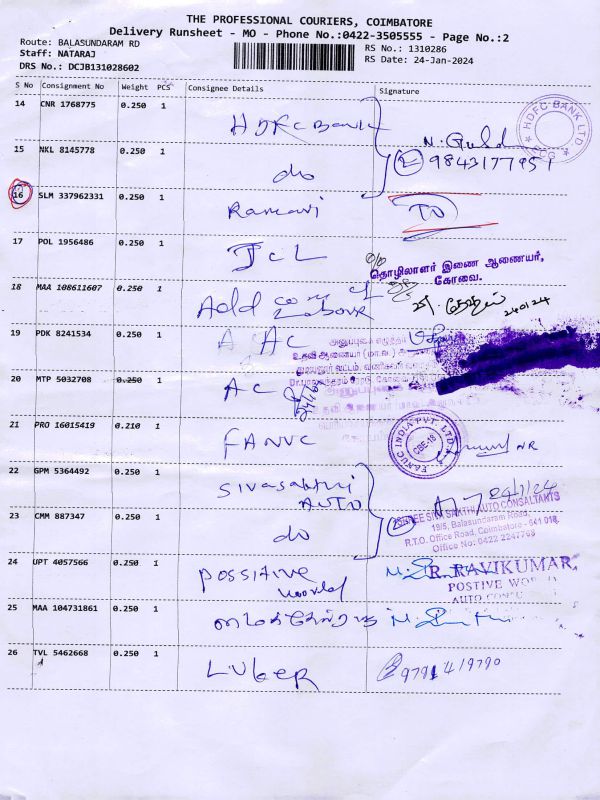 THE PROFESSIONAL COURIERS, COIMBATORE
Delivery Runsheet - MO - Phone No.:0422-3505555 - Page No.:2
Route: BALASUNDARAM RD
Staff: NATARAJ
DRS No.: DCJB131028602
RS No.: 1310286
RS Date: 24-Jan-2024
S No Consignment No Weight PCS Consignee Details Signature
14 CNR 1768775 0.250 1 HDFC Bank
HDFC BANK LTD
15 NKL 8145778 0.250 1 do
2 9843177951
16 SLM 337962331 0.250 1 Ramani
17 POL 1956486 0.250 1 JCL
தொழிலாளர் இணை ஆணையர்,
கோவை.
18 MAA 108611607 0.250 1 Add com of Labour
24/01/24
19 PDK 8241534 0.250 1 A AC
20 MTP 5032708 0.250 1 AC
21 PRO 16015419 0.210 1 FANUC
FANUC INDIA PVT. LTD.
CBE-18
22 GPM 5364492 0.250 1 Sivasakthi AUTO
24/1/24
SHREE SIVA SHAKTHI AUTO CONSULTANTS
19/5, Balasundaram Road,
R.T.O. Office Road, Coimbatore - 641 018.
Office No: 0422 2247768
23 CMM 887347 0.250 1 do
24 UPT 4057566 0.250 1 Possitive world
R. RAVIKUMAR,
POSTIVE WORLD
AUTO CONSU
25 MAA 104731861 0.250 1
26 TVL 5462668 0.250 1 LUBER
9791419790